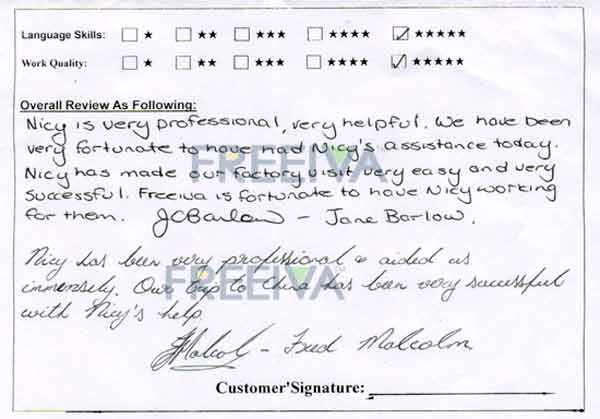 Language Skills: ★ ★★ ★★★ ★★★★ ★★★★★
Work Quality: ★ ★★ ★★★ ★★★★ ★★★★★
Overall Review As Following:
Nicy is very professional, very helpful. We have been
very fortunate to have had Nicy's assistance today.
FREEIVA
Nicy has made our factory visit very easy and very
successful. Freeiva is fortunate to have Nicy working
for them. JCBarlow – Jane Barlow.
Nicy has been very professional & aided us
FREEIVA™
immensely. Our trip to China has been very successful
with Nicy's help.
FMalcolm – Fred Malcolm
Customer'Signature: